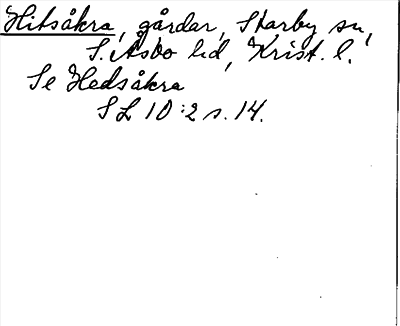 Hitsåkra, gårdar, Starby sn,
S. Åsbo hd, Krist. l.
Se Hedsåkra
SL 10:2 s. 14.